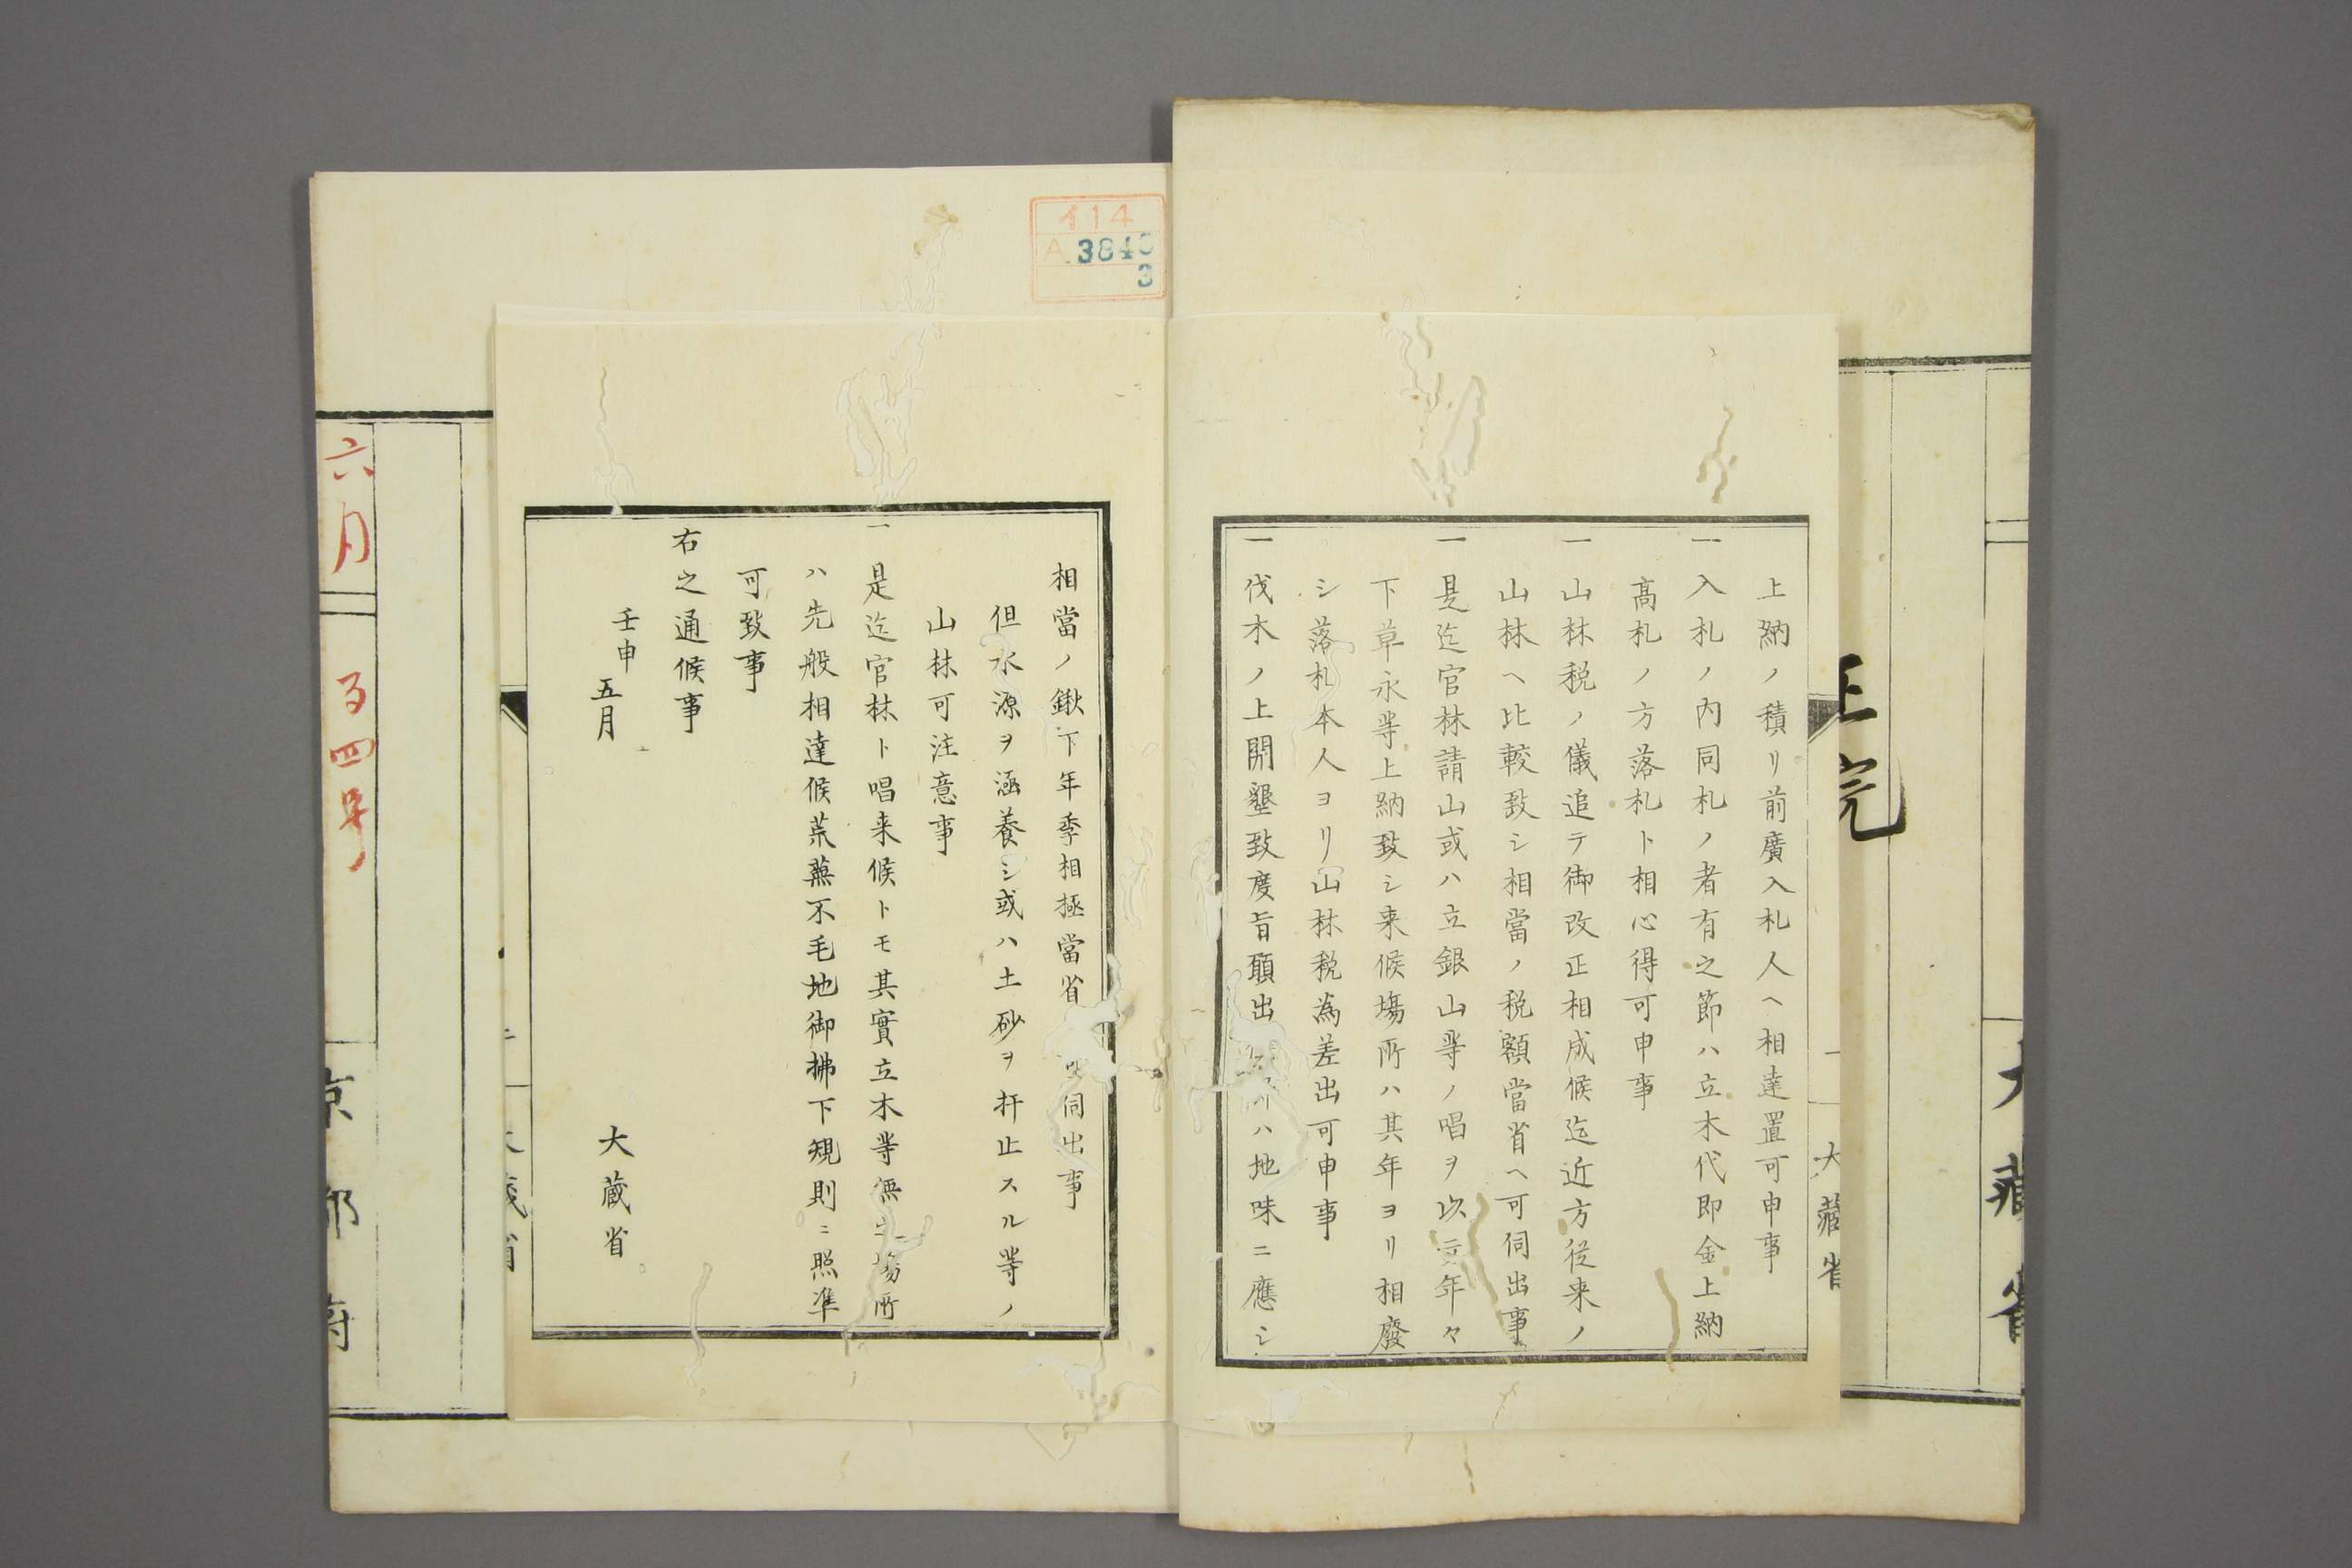 正院
大藏省
大藏省
上納ノ積リ前廣入札人ヘ相達置可申事
一入札ノ內同札ノ者有之節ハ立木代即金上納
高札ノ方落札ト相心得可申事
一山林税ノ儀追テ御改正相成候迄近方従来ノ
山林ヘ比較致シ相當ノ税額當省ヘ可伺出事
一是迄官林請山或ハ立銀山等ノ唱ヲ以年々
下草永等上納致シ来候場所ハ其年ヨリ相廢
シ落札本人ヨリ山林税為差出可申事
一伐木ノ上開墾致度旨願出ハ地味ニ應シ
イ14
A 3840
3
相當ノ鍬下年季相極當省伺出事
但水源ヲ涵養シ或ハ土砂ヲ扞止スル等ノ
山林可注意事
一是迄官林ト唱来候トモ其實立木等無之場所
ハ先般相達候荒蕪不毛地御拂下規則ニ照準
可致事
右之通候事
壬申五月
大蔵省
六月
四号
京都府